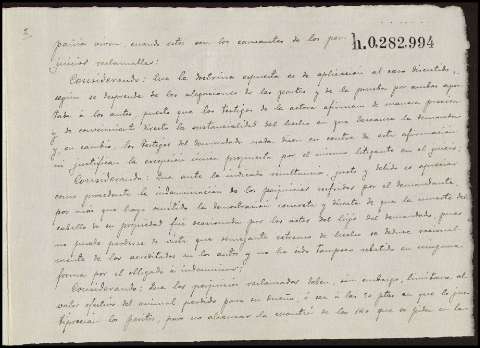 3
h.0.282.994
patria viven, cuando estos son los causantes de los per-
juicios reclamados:
Considerando: Que la doctrina expuesta es de aplicación al caso discutido,
según se desprende de las alegaciones de las partes y de la prueba por ambas apor-
tada á los autos, puesto que los testigos de la actora afirman de manera precisa
y de conocimiento directo la sustancialidad del hecho en que descansa la demanda
y en cambio, los testigos del demandado nada dicen en contra de esta afirmación
ni justifican la excepción única propuesta por el mismo litigante en el juicio;
Considerando: Que ante la indicada resultancia, justo y debido es apreciar
como procedente la indemnización de los perjuicios sufridos por el demandante,
por más que haya omitido la demostración concreta y directa de que la muerte del
caballo de su propiedad fué ocasionada por los actos del hijo del demandado, pues
no puede perderse de vista que semejante extremo de hecho se deduce racional-
mente de los acreditados en los autos y no ha sido tampoco rebatido en ninguna
forma por el obligado á indemnizar;
Considerando: Que los perjuicios reclamados deben, sin embargo, limitarse al
valor efectivo del animal perdido para su dueño, ó sea á las ptas en que lo jus-
tipreciaron los peritos, pero no alcanzar la cuantía de las que se piden en la